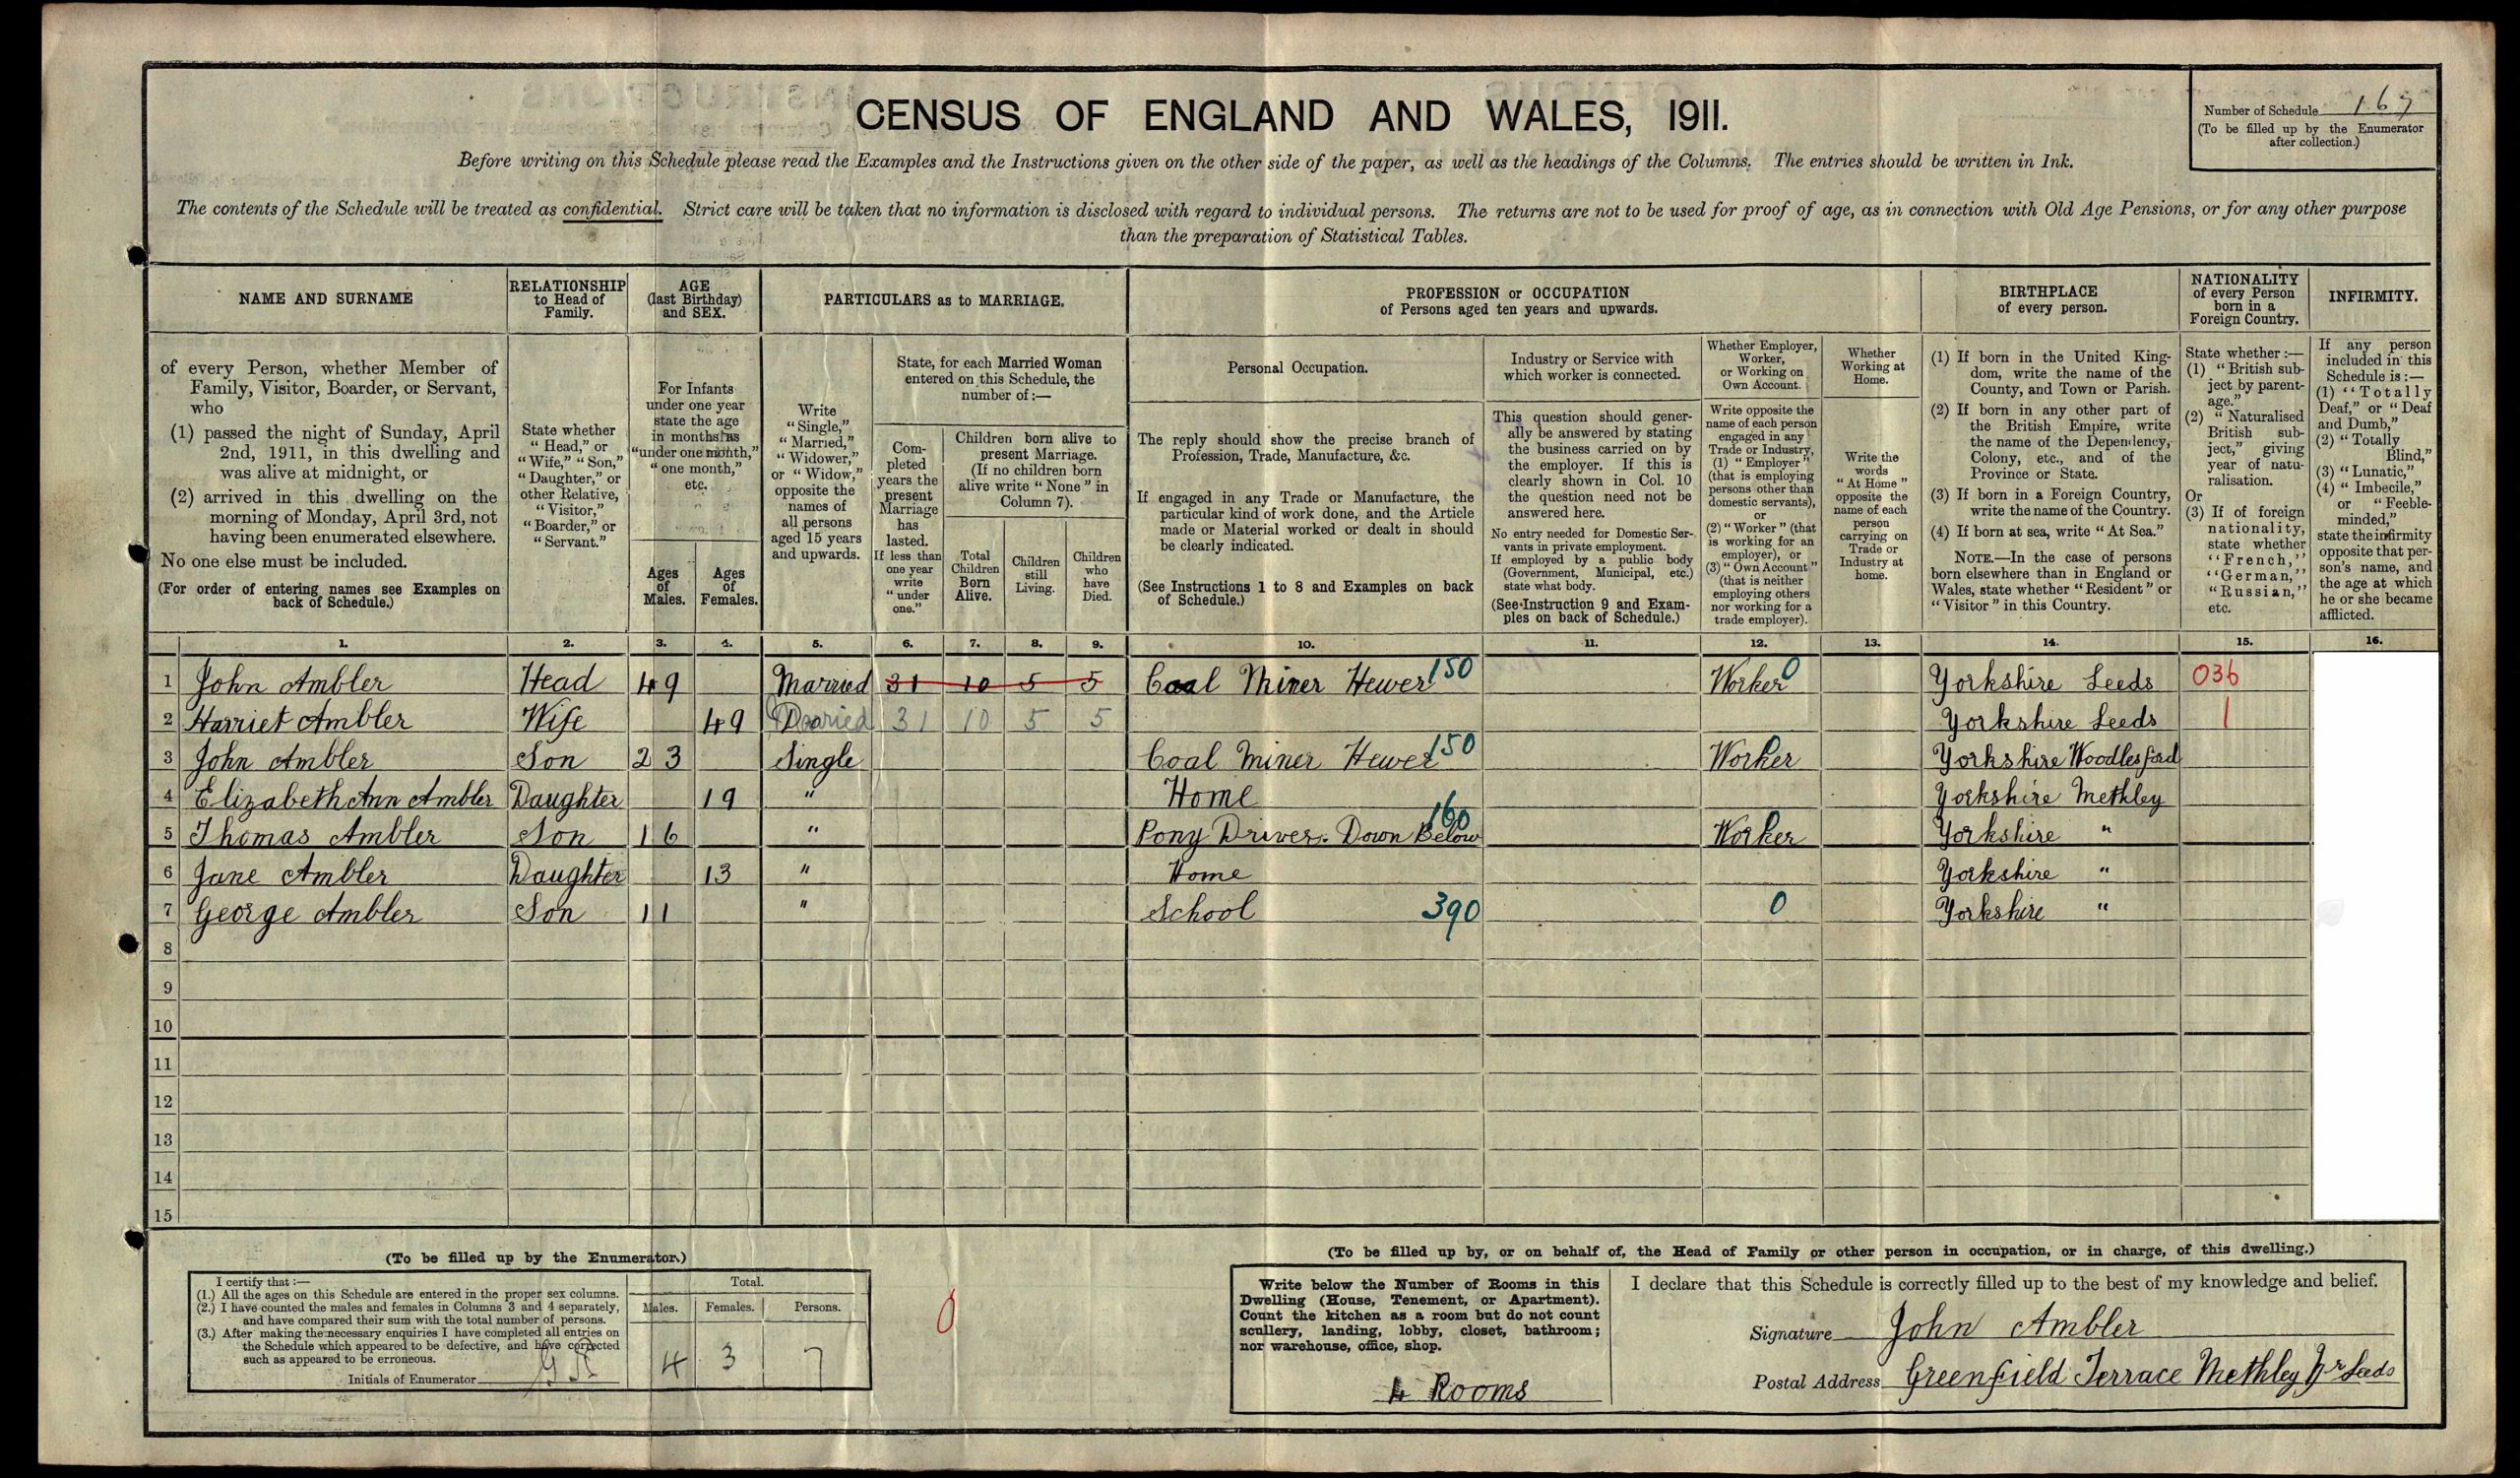 CENSUS OF ENGLAND AND WALES, 1911.
Number of Schedule 167
(To be filled up by the Enumerator
after collection.)
Before writing on this Schedule please read the Examples and the Instructions given on the other side of the paper, as well as the headings of the Columns. The entries should be written in Ink.
The contents of the Schedule will be treated as confidential. Strict care will be taken that no information is disclosed with regard to individual persons. The returns are not to be used for proof of age, as in connection with Old Age Pensions, or for any other purpose
than the preparation of Statistical Tables.
NAME AND SURNAME
of every Person, whether Member of
Family, Visitor, Boarder, or Servant,
who
(1) passed the night of Sunday, April
2nd, 1911, in this dwelling and
was alive at midnight, or
(2) arrived in this dwelling on the
morning of Monday, April 3rd, not
having been enumerated elsewhere.
No one else must be included.
(For order of entering names see Examples on
back of Schedule.)
RELATIONSHIP
to Head of
Family.
State whether
"Head," or
"Wife," "Son,"
"Daughter," or
other Relative,
"Visitor,"
"Boarder," or
"Servant."
AGE
(last Birthday)
and SEX.
For Infants
under one year
state the age
in months as
"under one month,"
"one month,"
etc.
Ages
of
Males.
Ages
of
Females.
PARTICULARS as to MARRIAGE.
Write
"Single,"
"Married,"
"Widower,"
or "Widow,"
opposite the
names of
all persons
aged 15 years
and upwards.
State, for each Married Woman
entered on this Schedule, the
number of:—
Com-
pleted
years the
present
Marriage
has
lasted.
If less than
one year
write
"under
one."
Children born alive to
present Marriage.
(If no children born
alive write "None" in
Column 7).
Total
Children
Born
Alive.
Children
still
Living.
Children
who
have
Died.
PROFESSION or OCCUPATION
of Persons aged ten years and upwards.
Personal Occupation.
The reply should show the precise branch of
Profession, Trade, Manufacture, &c.
If engaged in any Trade or Manufacture, the
particular kind of work done, and the Article
made or Material worked or dealt in should
be clearly indicated.
(See Instructions 1 to 8 and Examples on back
of Schedule.)
Industry or Service with
which worker is connected.
This question should gener-
ally be answered by stating
the business carried on by
the employer. If this is
clearly shown in Col. 10
the question need not be
answered here.
No entry needed for Domestic Ser-
vants in private employment.
If employed by a public body
(Government, Municipal, etc.)
state what body.
(See Instruction 9 and Exam-
ples on back of Schedule.)
Whether Employer,
Worker,
or Working on
Own Account.
Write opposite the
name of each person
engaged in any
Trade or Industry,
(1) "Employer"
(that is employing
persons other than
domestic servants),
or
(2) "Worker" (that
is working for an
employer), or
(3) "Own Account"
(that is neither
employing others
nor working for a
trade employer).
Whether
Working at
Home.
Write the
words
"At Home"
opposite the
name of each
person
carrying on
Trade or
Industry at
home.
BIRTHPLACE
of every person.
(1) If born in the United King-
dom, write the name of the
County, and Town or Parish.
(2) If born in any other part of
the British Empire, write
the name of the Dependency,
Colony, etc., and of the
Province or State.
(3) If born in a Foreign Country,
write the name of the Country.
(4) If born at sea, write "At Sea."
NOTE.—In the case of persons
born elsewhere than in England or
Wales, state whether "Resident" or
"Visitor" in this Country.
NATIONALITY
of every Person
born in a
Foreign Country.
State whether:—
(1) "British sub-
ject by parent-
age."
(2) "Naturalised
British sub-
ject," giving
year of natu-
ralisation.
Or
(3) If of foreign
nationality,
state whether
"French,"
"German,"
"Russian,"
etc.
INFIRMITY.
If any person
included in this
Schedule is:—
(1) "Totally
Deaf," or "Deaf
and Dumb,"
(2) "Totally
Blind,"
(3) "Lunatic,"
(4) "Imbecile,"
or "Feeble-
minded,"
state the infirmity
opposite that per-
son's name, and
the age at which
he or she became
afflicted.
1. 2. 3. 4. 5. 6. 7. 8. 9. 10. 11. 12. 13. 14. 15. 16.
1 John Ambler Head 49 Married 31 10 5 5 Coal Miner Hewer 150 Worker 0 Yorkshire Leeds 036
2 Harriet Ambler Wife 49 Married 31 10 5 5 Yorkshire Leeds 1
3 John Ambler Son 23 Single Coal Miner Hewer 150 Worker Yorkshire Woodlesford
4 Elizabeth Ann Ambler Daughter 19 " Home Yorkshire Methley
5 Thomas Ambler Son 16 " Pony Driver. Down Below 160 Worker Yorkshire "
6 Jane Ambler Daughter 13 " Home Yorkshire "
7 George Ambler Son 11 " School 390 0 Yorkshire "
8
9
10
11
12
13
14
15
(To be filled up by the Enumerator.)
I certify that:—
(1.) All the ages on this Schedule are entered in the proper sex columns.
(2.) I have counted the males and females in Columns 3 and 4 separately,
and have compared their sum with the total number of persons.
(3.) After making the necessary enquiries I have completed all entries on
the Schedule which appeared to be defective, and have corrected
such as appeared to be erroneous.
Initials of Enumerator
Total.
Males. Females. Persons.
4 3 7
0
(To be filled up by, or on behalf of, the Head of Family or other person in occupation, or in charge, of this dwelling.)
Write below the Number of Rooms in this
Dwelling (House, Tenement, or Apartment).
Count the kitchen as a room but do not count
scullery, landing, lobby, closet, bathroom;
nor warehouse, office, shop.
4 Rooms
I declare that this Schedule is correctly filled up to the best of my knowledge and belief.
Signature John Ambler
Postal Address Greenfield Terrace Methley Nr Leeds